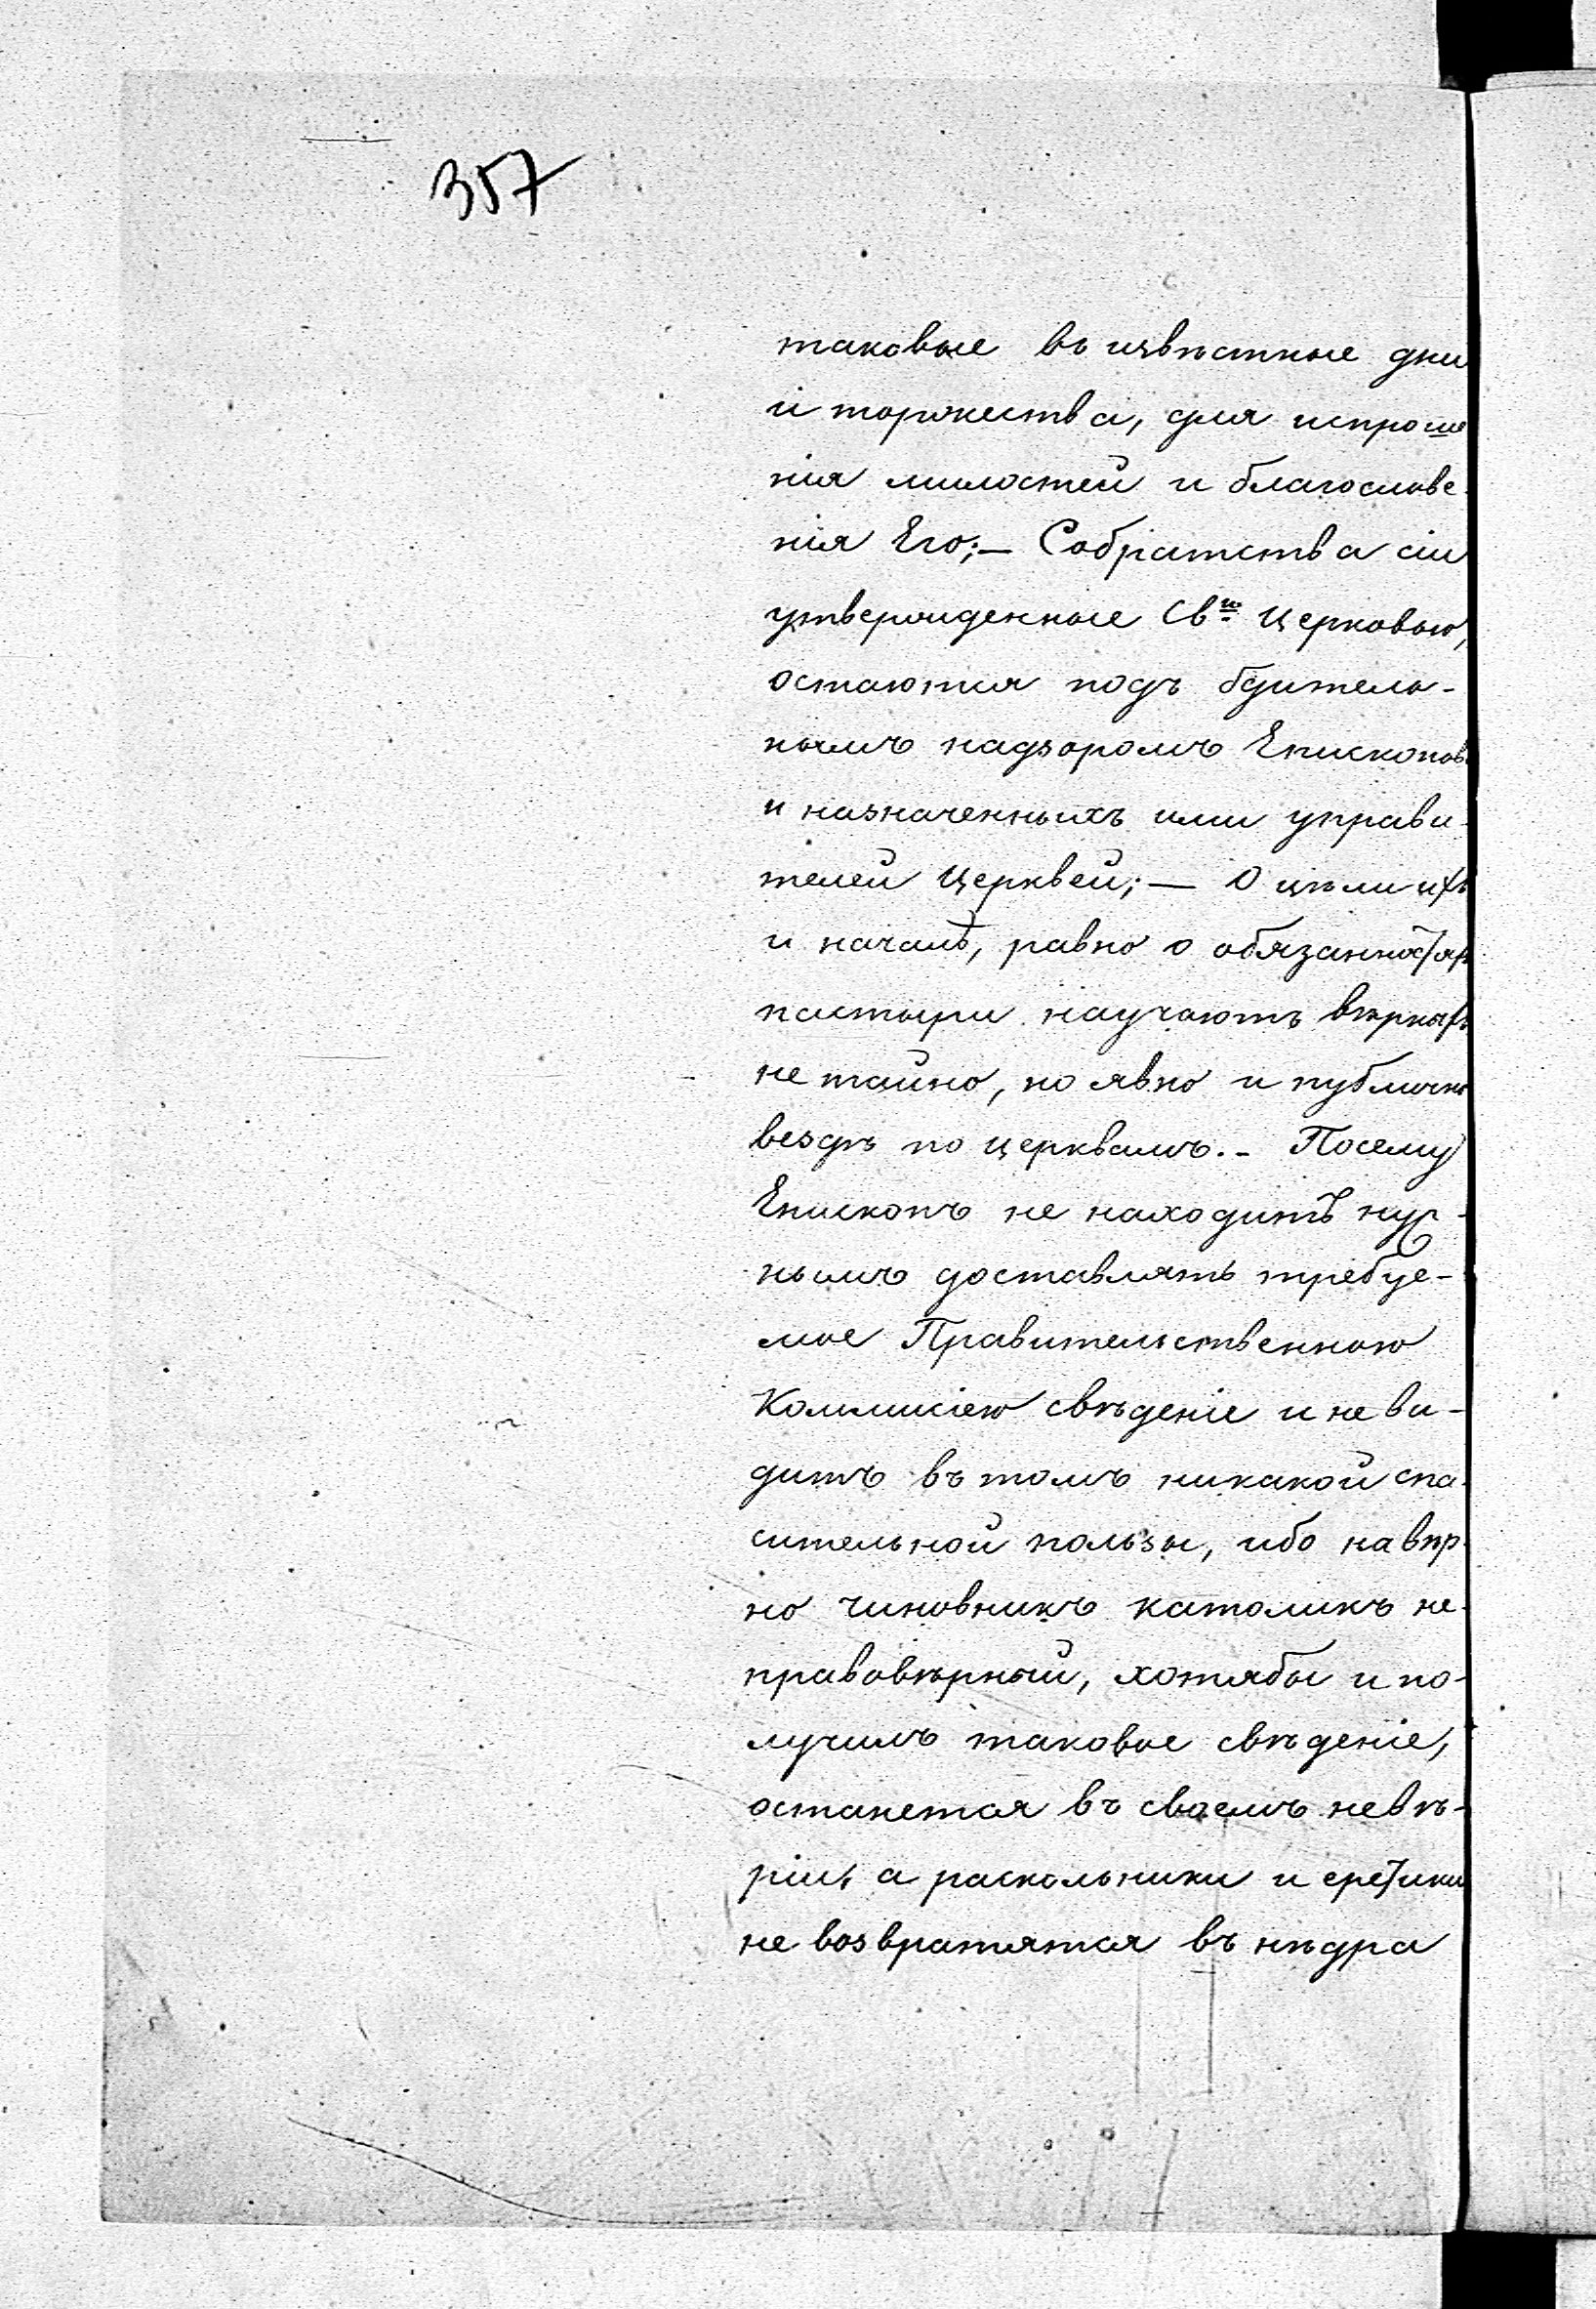 357
таковые въ извѣстные дни
и торжества, для испроше
нія милостей и благослове-
нія Его;— Собратства сіи
утвержденные Св:ю Церковью,
остаются подъ бдитель-
нымъ надзоромъ Епископовъ
и назначенныхъ ими управи-
телей Церквей;— О цѣли ихъ
и началѣ, равно о обязанностяхъ
пастыри научаютъ вѣрныхъ
не тайно, но явно и публично
вездѣ по церквамъ.- Посему
Епископъ не находитъ нуж-
нымъ доставлять требуе-
мое Правительственною
Коммисіею свѣденіе и не ви-
дитъ въ томъ никакой спа-
сительной пользы, ибо навѣр-
но чиновникъ католикъ не-
правовѣрный, хотябы и по-
лучилъ таковое свѣденіе,
останется въ своемъ невѣ-
ріи, а раскольники и еретики
не возвратятся въ нѣдра